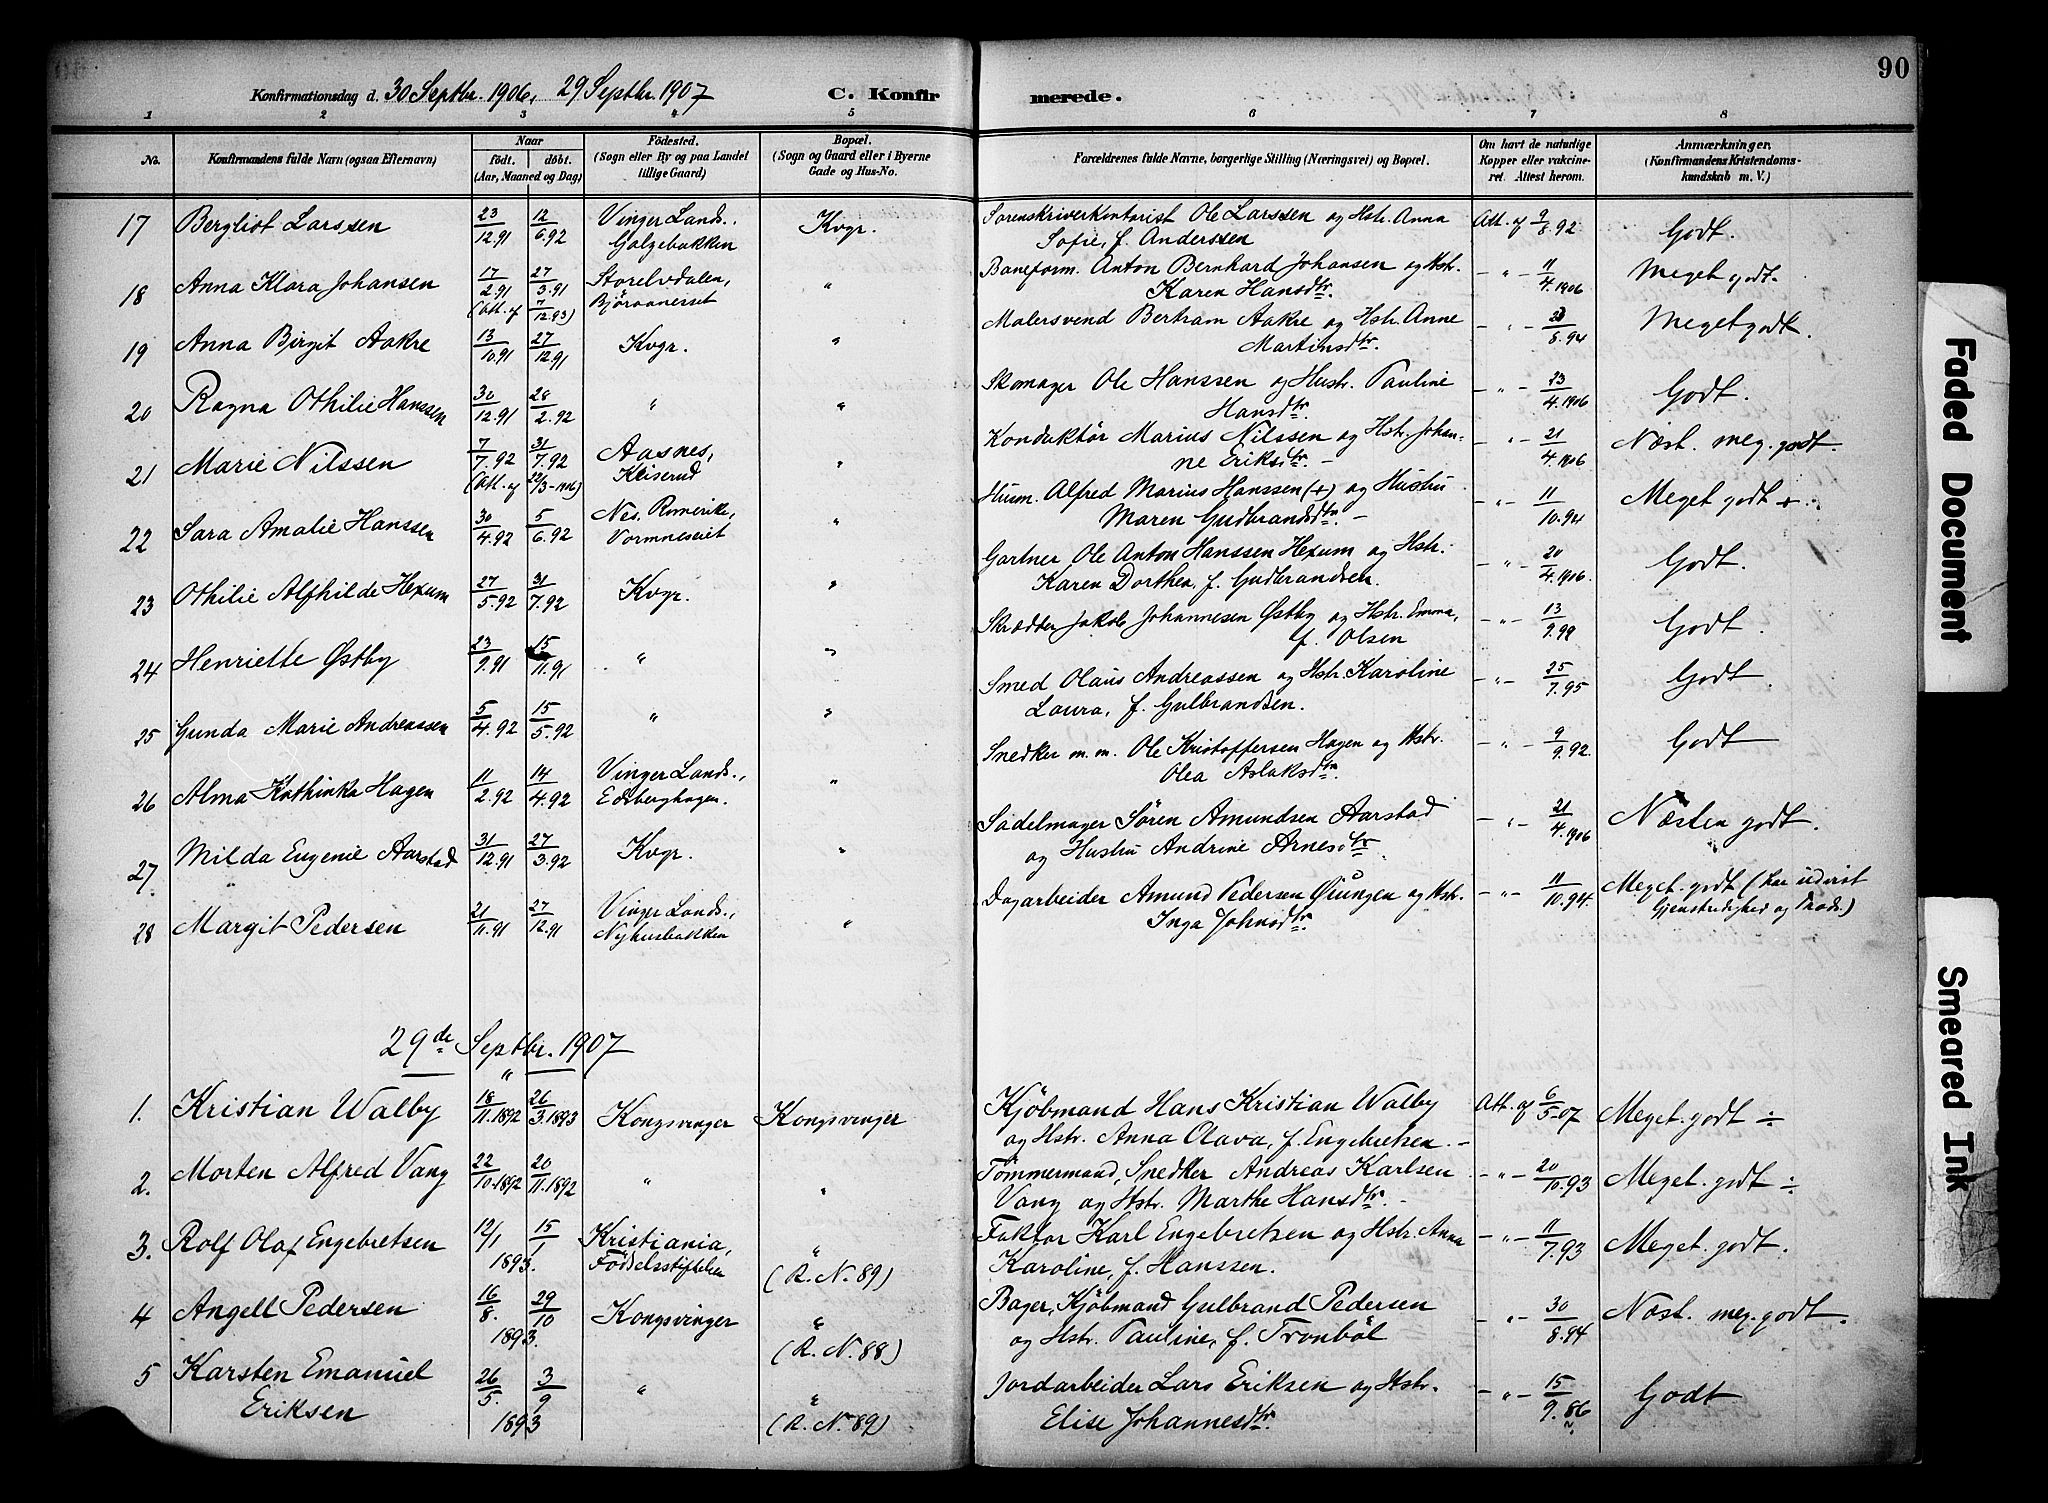 90
Konfirmationsdag d. 30 Septbr. 1906, 29 Septbr. 1907 C. Konfirmerede.
1 2 3 4 5 6 7 8
No. Konfirmandens fulde Navn (ogsaa Efternavn) Naar födt. döbt. (Aar, Maaned og Dag) Födested. (Sogn eller By og paa Landet tillige Gaard) Bopæl. (Sogn og Gaard eller i Byerne Gade og Hus-No. Forældrenes fulde Navne, borgerlige Stilling (Næringsvei) og Bopæl. Om havt de naturlige Kopper eller vakcineret. Attest herom. Anmærkninger. (Konfirmandens Kristendomskundskab m. V.)
17 Bergliot Larssen 23/12.91 12/6.92 Vinger Lands., Galgebakken Kvgr. Sorenskriverkontorist Ole Larssen og Hstr. Anna Sofie, f. Anderssen Att. af 9/8.92 Godt.
18 Anna Klara Johansen 17/2.91 27/3.91 (Att. af 7/12.93) Storelvdalen, Björaanesset " Baneform. Anton Bernhard Johansen og Hstr. Karen Hansdtr - " - 11/4.1906 Meget godt.
19 Anna Birgit Aakre 13/10.91 27/12.91 Kvgr. " Malersvend Bertram Aakre og Hstr. Anne Martinsdtr. - " - /8.94 Meget godt.
20 Ragna Othilie Hanssen 30/12.91 28/2.92 " " Skomager Ole Hanssen og Hustr. Pauline Hansdtr - " - 23/4.1906 Godt.
21 Marie Nilssen 7/7.92 31/7.92 (Att. af 22/3-1906) Aasnes, Keiserud " Konduktör Marius Nilssen og Hstr. Johanne Eriksdtr. - - " - 21/4.1906 Næst. meg. godt.
22 Sara Amalie Hanssen 30/4.92 5/6.92 Nes. Romerike, Vormneseiet " Husm. Alfred Marius Hanssen (+) og Hustru Maren Gudbrandsdtr. - - " - 11/10.94 Meget godt +.
23 Othilie Alfhilde Hexum 27/5.92 31/7.92 Kvgr. " Gartner Ole Anton Hanssen Hexum og Hstr. Karen Dorthea, f. Gudbrandsen. - " - 20/4.1906. Godt.
24 Henriette Østby 23/9.91 15/11.91 " " Skrædder Jakob Johannesen Østby og Hstr. Emma, f. Olsen - " - 13/9.99 Godt.
25 Gunda Marie Andreassen 5/4.92 15/5.92 " " Smed Olaus Andreassen og Hstr. Karoline Laura, f. Gulbrandsen. - " - 25/7.95 Godt
26 Alma Kathinka Hagen 11/2.92 14/4.92 Vinger Lands., Edsberghagen. " Snedker m.m. Ole Kristoffersen Hagen og Hstr. Olea Aslaksdtr - " - 9/9.92. Godt
27. Milda Eugenie Aarstad 31/12.91 27/3.92 Kvgr. " Sadelmager Sören Amundsen Aarstad og Hustru Andrine Arnesdtr - " - 21/4.1906 Næsten godt.
28 Margit Pedersen 21/11.91 27/12.91 Vinger Lands., Nyhusbakken " Dagarbeider Amund Pedersen Øiungen og Hstr. Inga Johnsdtr. - " - 11/10.94. Meget godt (har udvist Gjenstridighed og Trods.)
29de Septbr. 1907
1. Kristian Walby 18/11.1892 26/3.1893 Kongsvinger Kongsvinger Kjöbmand Hans Kristian Walby og Hstr. Anna Olava, f. Engebretsen. - Att. af 6/5-07 Meget godt ÷
2. Morten Alfred Vang 22/10.1892 20/11.1892 " " Tömmermand, Snedker Andreas Karlsen Vang og Hstr. Marthe Hansdtr. - - " - 20/10.93 Meget godt ÷
3. Rolf Olaf Engebretsen 12/1 15/1 1893. Kristiania, Födselsstiftelsen " (R. N. 89) Faktor Karl Engebretsen og Hstr. Anna Karoline, f. Hanssen. - " - 11/7.93 Meget godt.
4 Angell Pedersen 16/8. 29/10 1893. Kongsvinger " (R. N. 88) Bager, Kjöbmand Gulbrand Pedersen og Hstr. Pauline, f. Tronböl - " - 30/8.94 Næst. meg. godt.
5 Karsten Emanuel Eriksen 26/5. 3/9 1893 " " (R. N. 89) Jordarbeider Lars Eriksen og Hstr. Elise Johannesdtr. - " - 15/9.86 Godt
Faded Document
Smeared Ink